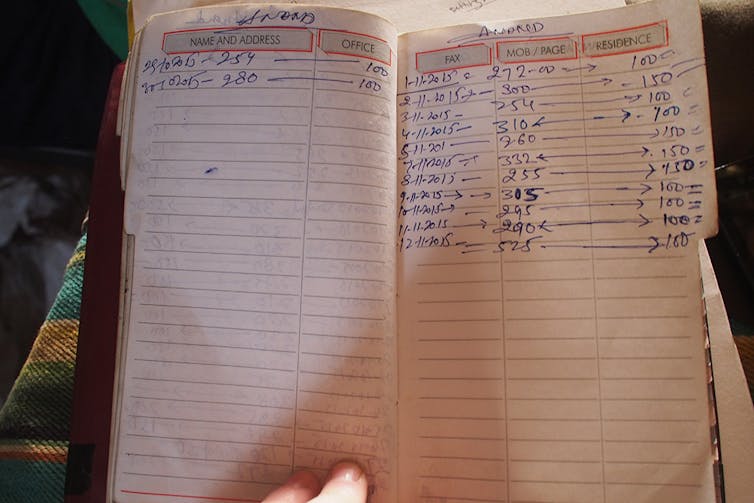 NAME AND ADDRESS OFFICE
254 — 100
280 — 100
FAX MOB / PAGE RESIDENCE
1-11-2015 = 272-00 → 100 =
2-11-2015 - 300 - 150
3-11-2015 - 254 → 100 =
4-11-2015 - 310 → 100 =
260 → 150 =
7-11-2015 - 332 → 150 =
8-11-2015 - 255 → 150 =
9-11-2015 → 305 → 100 =
10-11-2015 → 295 → 100 =
11-11-2015 → 290 → 100 =
12-11-2015 - 525 → 100